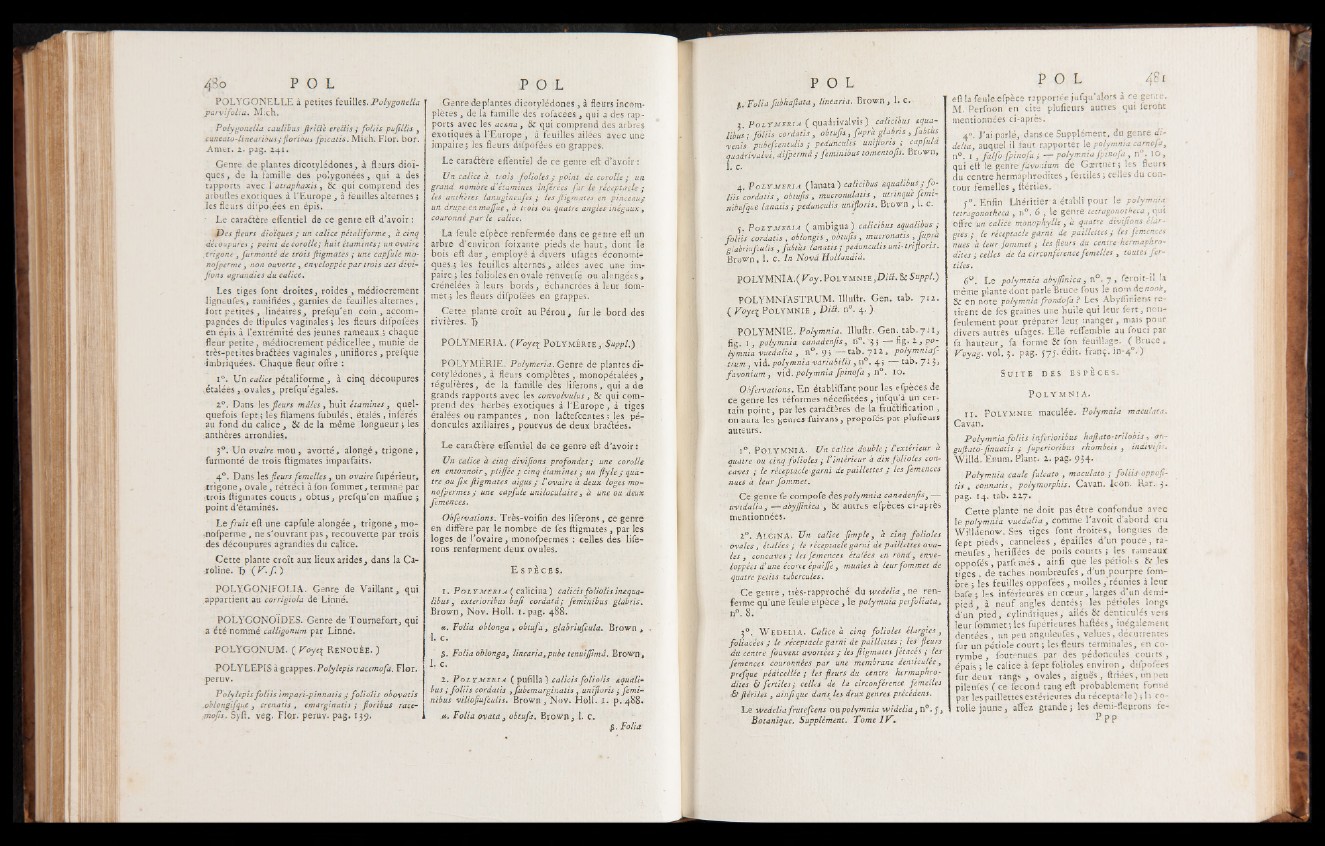 480 P O L
POLYGONELLE à petites feuilles. Polygonella
parvifolia. Mich.
Polygonella caulibus strictè erectis ; foliis pusillis ,
cuneato-linearibus ; floribus spicatis. Mich. Flor. bor.
Amer. 2. pag. 241.
Genre de plantes dicotylédones, à fleurs dioï-
ques, de la famille des polygonées, qui a des
rapports avec l'atraphaxis, & qui comprend des
arbustes exotiques à l'Europe, à feuilles alternes ;
les fleurs disposées en épis.
Le caractère essentiel de ce genre est d'avoir :
Des fleurs dioïques ; un calice pétaliforme, à cinq
découpures ; point de corolle ; huit étamines ; un ovaire
trigone, surmonté de trois stigmates ; une capsule mo-
nosperme, non ouverte, enveloppée par trois des divi-
sions agrandies du calice.
Les tiges sont droites, roides, médiocrement
ligneuses, ramifiées, garnies de feuilles alternes,
fort petites, linéaires, presqu'en coin, accom-
pagnées de stipules vaginales ; les fleurs disposées
en épis à l'extrémité des jeunes rameaux ; chaque
fleur petite, médiocrement pédicellée, munie de
très-petites bractées vaginales, uniflores, presque
imbriquées. Chaque fleur offre :
1°. Un calice pétaliforme, à cinq découpures
étalées, ovales, presqu'égales.
2°. Dans les fleurs mâles, huit étamines, quel-
quefois sept ; les filamens subulés, étalés, insérés
au fond du calice, & de la même longueur ; les
anthères arrondies.
3°. Un ovaire mou, avorté, alongé, trigone,
surmonté de trois stigmates imparfaits.
4°. Dans les fleurs femelles, un ovaire supérieur,
trigone, ovale, rétréci à son sommet, terminé par
trois stigmates courts, obtus, presqu'en massue ;
point d'étamines.
Le fruit est une capsule alongée, trigone, mo-
nosperme, ne s'ouvrant pas, recouverte par trois
des découpures agrandies du calice.
Cette plante croît aux lieux arides, dans la Ca-
roline. ♄ (V. s.)
POLYGONIFOLIA. Genre de Vaillant, qui
appartient au corrigiola de Linné.
POLYGONOÏDES. Genre de Tournefort, qui
a été nommé calligonum par Linné.
POLYGONUM. (Voyez RENOUÉE.)
POLYLEPIS à grappes. Polylepis racemosa. Flor.
peruv.
Polylepis foliis impari-pinnatis ; foliolis obovatis
oblongisque, crenatis, emarginatis ; floribus race-
mosis. Syst. veg. Flor. peruv. pag. 139.
P O L
Genre de plantes dicotylédones, à fleurs incom-
plètes, de la famille des rosacées, qui a des rap-
ports avec les acæna, & qui comprend des arbres
exotiques à l'Europe, à feuilles ailées avec une
impaire ; les fleurs disposées en grappes.
Le caractère essentiel de ce genre est d'avoir :
Un calice à trois folioles ; point de corolle ; un
grand nombre d'étamines insérées sur le réceptacle ;
les anthères lanugineuses ; les stigmates en pinceau ;
un drupe en massue, à trois ou quatre angles inégaux,
couronné par le calice.
La seule espèce renfermée dans ce genre est un
arbre d'environ soixante pieds de haut, dont le
bois est dur, employé à divers usages économi-
ques ; les feuilles alternes, ailées avec une im-
paire ; les folioles en ovale renversé ou alongées,
crénelées à leurs bords, échancrées à leur som-
met ; les fleurs disposées en grappes.
Cette plante croît au Pérou, sur le bord des
rivières. ♄
POLYMERIA. (Voyez POLYMÉRIE, Suppl.)
POLYMÉRIE. Polymeria. Genre de plantes di-
cotylédones, à fleurs complètes, monopétalées,
régulières, de la famille des liserons, qui a de
grands rapports avec les convolvulus, & qui com-
prend des herbes exotiques à l'Europe, à tiges
étalées ou rampantes, non lactescentes ; les pé-
doncules axillaires, pourvus de deux bractées.
Le caractère essentiel de ce genre est d'avoir :
Un calice à cinq divisions profondes ; une corolle
en entonnoir, plissée ; cinq étamines ; un style ; qua-
tre ou six stigmates aigus ; l'ovaire à deux loges mo-
nospermes ; une capsule uniloculaire, à une ou deux
semences.
Observations. Très-voisin des liserons, ce genre
en diffère par le nombre de ses stigmates, par les
loges de l'ovaire, monospermes : celles des lise-
rons renferment deux ovules.
ESPÈCES.
1. POLYMERIA (calicina) calicis foliolis inequa-
libus, exterioribus basi cordatâ ; feminibus glabris.
Brown, Nov. Holl. 1. pag. 488.
α. Folia oblonga, obtusa, glabriuscula. Brown,
l. c.
β. Folia oblonga, linearia, pube tenuissimâ. Brown,
l. c.
2. POLYMERIA (pusilla) calicis foliolis æquali-
bus ; foliis cordatis, subemarginatis, unifloris ; semi-
nibus villosiusculis. Brown, Nov. Holl. 1. p. 488.
α. Folia ovata, obtusa. Brown, l. c.
β. Folia
P O L
β. Folia subhastata, linearia. Brown, l. c.
3. POLYMERIA (quadrivalvis) calicibus æqua-
libus ; foliis cordatis, obtusis, suprà glabris, subtùs
venis pubescentulis ; pedunculis unifloris ; capsulâ
quadrivalvi, dispermâ ; seminibus tomentosis. Brown,
l. c.
4. POLYMERIA (lanata) calicibus æqualibus ; fo-
liis cordatis, obtusis, mucronulatis, utrinquè semi-
nibusque lanatis ; pedunculis unifloris. Brown, l. c.
5. POLYMERIA (ambigua) calicibus æqualibus ;
foliis cordatis, oblongis, obtusis, mucronatis, suprà
glabriusculis, subtùs lanatis ; pedunculis uni-trifloris.
Brown, l. c. In Novâ Hollandiâ.
POLYMNIA. (Voy. POLYMNIE, Dict. & Suppl.)
POLYMNIASTRUM. Illustr. Gen. tab. 712.
(Voyez POLYMNIE, Dict. n°. 4.)
POLYMNIE. Polymnia. Illustr. Gen. tab. 711,
fig. 1, polymnia canadensis, n°. 3 ; — fig. 2, po-
lymnia uvedalia, n°. 9 ; — tab. 712, polymnias-
trum, vid. polymnia variabilis, n°. 4 ; — tab. 713,
favonium, vid. polymnia spinosa, n°. 10.
Observations. En établissant pour les espèces de
ce genre les réformes nécessitées, jusqu'à un cer-
tain point, par les caractères de la fructification,
on aura les genres suivans, proposés par plusieurs
auteurs.
1°. POLYMNIA. Un calice double ; l'extérieur à
quatre ou cinq folioles ; l'intérieur à dix folioles con-
caves ; le réceptacle garni de paillettes ; les semences
nues à leur sommet.
Ce genre se compose des polymnia canadensis, —
uvidalia, — abyssinica, & autres espèces ci-après
mentionnées.
2°. ALCINA. Un calice simple, à cinq folioles
ovales, étalées ; le réceptacle garni de paillettes ova-
les, concaves ; les semences étalées en rond, enve-
loppées d'une écorce épaisse, munies à leur sommet de
quatre petits tubercules.
Ce genre, très-rapproché du wedelia, ne ren-
ferme qu'une seule espèce, le polymnia perfoliata,
n°. 8.
3°. WEDELIA. Calice à cinq folioles élargies,
foliacées ; le réceptacle garni de paillettes ; les fleurs
du centre souvent avortées ; les stigmates sétacés ; les
semences couronnées par une membrane denticulée,
presque pédicellée ; les fleurs du centre hermaphro-
dites & fertiles ; celles de la circonférence femelles
& stériles, ainsi que dans les deux genres précédens.
Le wedelia frutescens ou polymnia widelia, n°. 5,
Botanique. Supplément. Tome IV.
P O L 481
est la seule espèce rapportée jusqu'alors à ce genre.
M. Persoon en cite plusieurs autres qui seront
mentionnées ci-après.
4°. J'ai parlé, dans ce Supplément, du genre di-
delta, auquel il faut rapporter le polymnia carnosa,
n°. 1, falso spinosa ; — polymnia spinosa, n°. 10,
qui est le genre favonium de Gærtner ; les fleurs
du centre hermaphrodites, fertiles ; celles du con-
tour femelles, stériles.
5°. Enfin Lhéritier a établi pour le polymnia
tetragonotheca, n°. 6, le genre tetragonotheca, qui
offre un calice monophylle, à quatre divisions élar-
gies ; le réceptacle garni de paillettes ; les semences
nues à leur sommet ; les fleurs du centre hermaphro-
dites ; celles de la circonférence femelles, toutes fer-
tiles.
6°. Le polymnia abyssinica, n°. 7, seroit-il la
même plante dont parle Bruce sous le nom de nook,
& en note polymnia frondosa ? Les Abyssiniens re-
tirent de ses graines une huile qui leur sert, non-
seulement pour préparer leur manger, mais pour
divers autres usages. Elle ressemble au souci par
sa hauteur, sa forme & son feuillage. (Bruce,
Voyag. vol. 5. pag. 575. édit. franç. in-4°.)
SUITE DES ESPÈCES.
POLYMNIA.
11. POLYMNIE maculée. Polymnia maculata.
Cavan.
Polymnia foliis inferioribus hastato-trilobis, an-
gustato-sinuatis ; superioribus rhombeis, indivisis.
Willd. Enum. Plant. 2. pag. 934.
Polymnia caule sulcato, maculato ; foliis opposi-
tis, connatis, polymorphis. Cavan. Icon. Rar. 3.
pag. 14. tab. 227.
Cette plante ne doit pas être confondue avec
le polymnia uvedalia, comme l'avoit d'abord cru
Willdenow. Ses tiges sont droites, longues de
sept pieds, cannelées, épaisses d'un pouce, ra-
meuses, hérissées de poils courts ; les rameaux
opposés, parsemés, ainsi que les pétioles & les
tiges, de taches nombreuses, d'un pourpre som-
bre ; les feuilles opposées, molles, réunies à leur
base ; les inférieures en cœur, larges d'un demi-
pied, à neuf angles dentés ; les pétioles longs
d'un pied, cylindriques, ailés & denticulés vers
leur sommet ; les supérieures hastées, inégalement
dentées, un peu anguleuses, velues, décurrentes
sur un pétiole court ; les fleurs terminales, en co-
rymbe, soutenues par des pédoncules courts,
épais ; le calice à sept folioles environ, disposées
sur deux rangs, ovales, aiguës, striées, un peu
pileuses (ce second rang est probablement formé
par les paillettes extérieures du réceptacle) ; la co-
rolle jaune, assez grande ; les demi-fleurons fe-
P p p